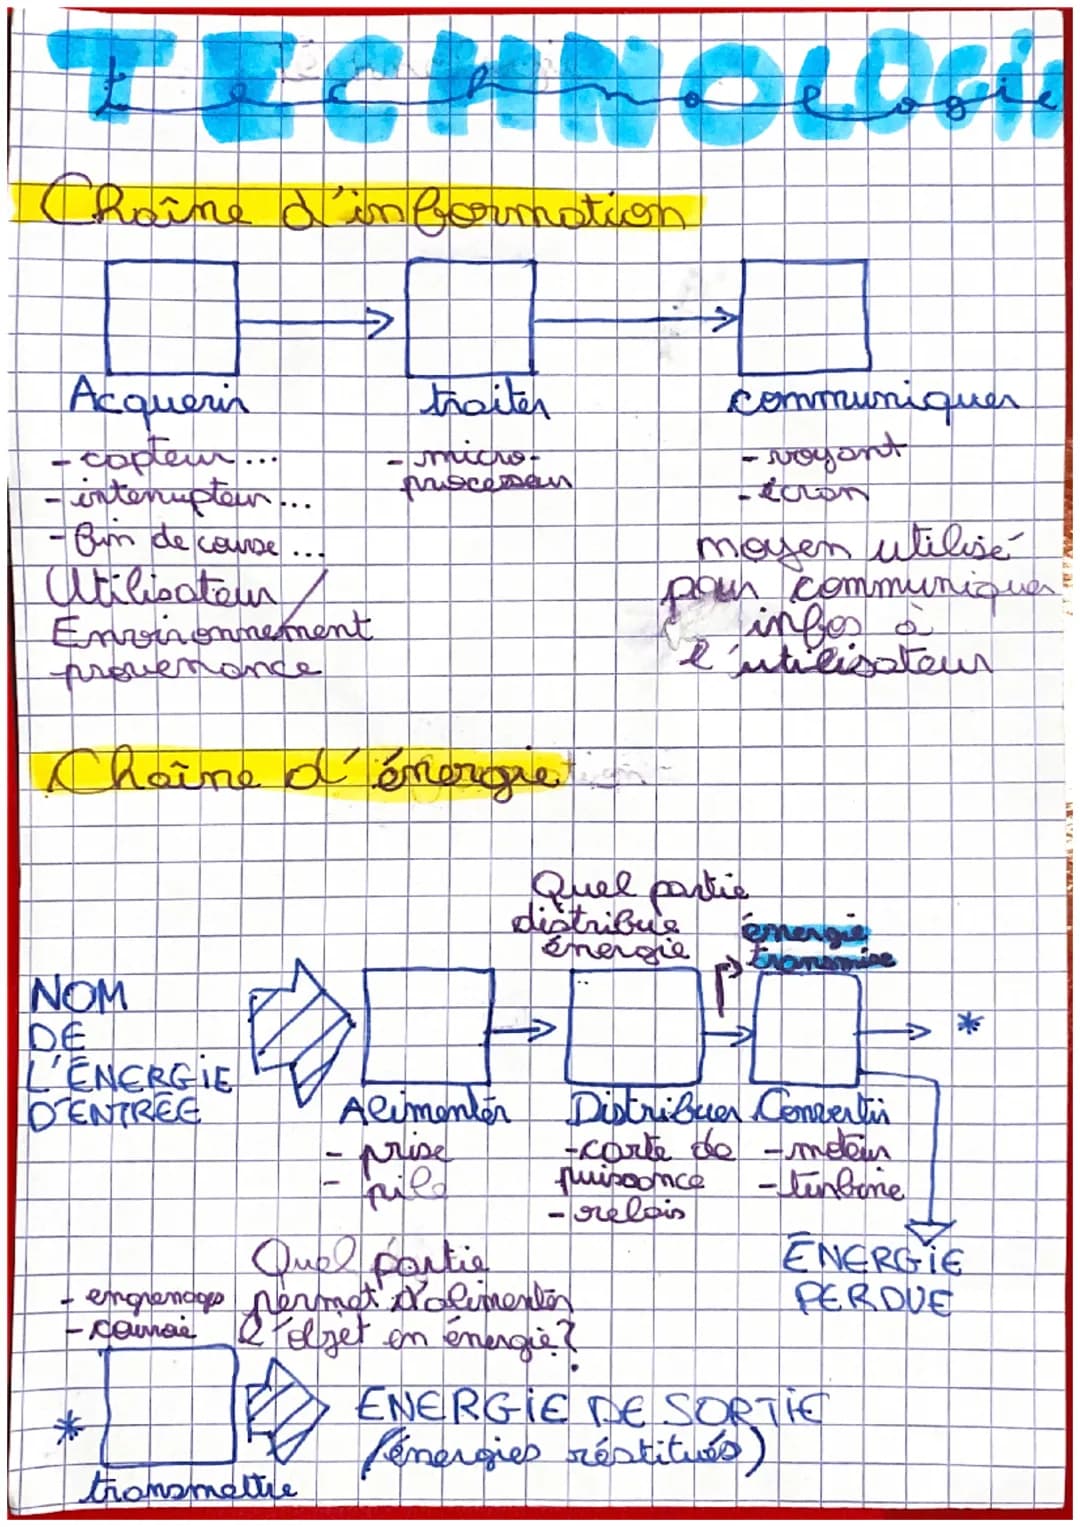 TECHNOLOGIE
technologie
Chaîne d'information
Acquerir
- capteur ...
- interrupteur ...
- fin de course ...
Utilisateur /
Environnement
provenance
traiter
- micro-
processeur
communiquer
- voyant
- écran
moyen utilisé
pour communiquer
infos à
l'utilisateur
Chaîne d'énergie
Quel partie
distribue
énergie
énergie
transmise
NOM
DE
L'ÉNERGIE
D'ENTRÉE
*
Alimenter
- prise
- pile
Distribuer
- carte de
puissance
- relais
Convertir
- moteur
- turbine
ÉNERGIE
PERDUE
Quel partie
permet d'alimenter
l'objet en énergie ?
- engrenages
- courroie
*
transmettre
ENERGIE DE SORTIE
(énergies réstitués)